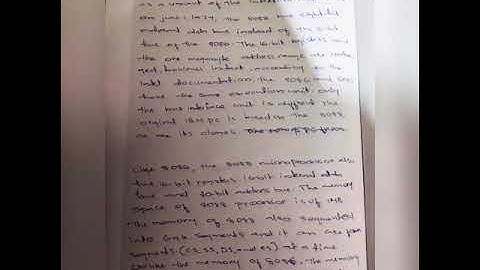 as a variant of the Intel
on June 1, 1979, the 8088 has eight-bit
external data bus instead of the 16-bit
bus of the 8086. The 16-bit registers and
the one megabyte address range
unchanged, however. Infact, according to the
Intel documentation, the 8086 and 8088
have the same execution unit. only
the bus interface unit is different. The
original IBM PC is based on the 8088
as are its clones
Like 8086, the 8088 microprocessor also
has 16-bit registers, 16-bit internal data
bus and 20-bit address bus. The memory
space of 8088 processor is of 1MB
The memory of 8088 also segmented
into segments and it can use four
segments (CS, SS, DS, and ES) at a time
unlike the memory of 8086. The memory